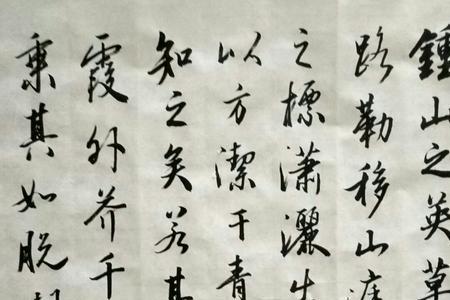 鍾山之英草
路勒移山庭
之標瀟灑出
以方潔干青
知之矣若其
霞外芥千
乘其如脫